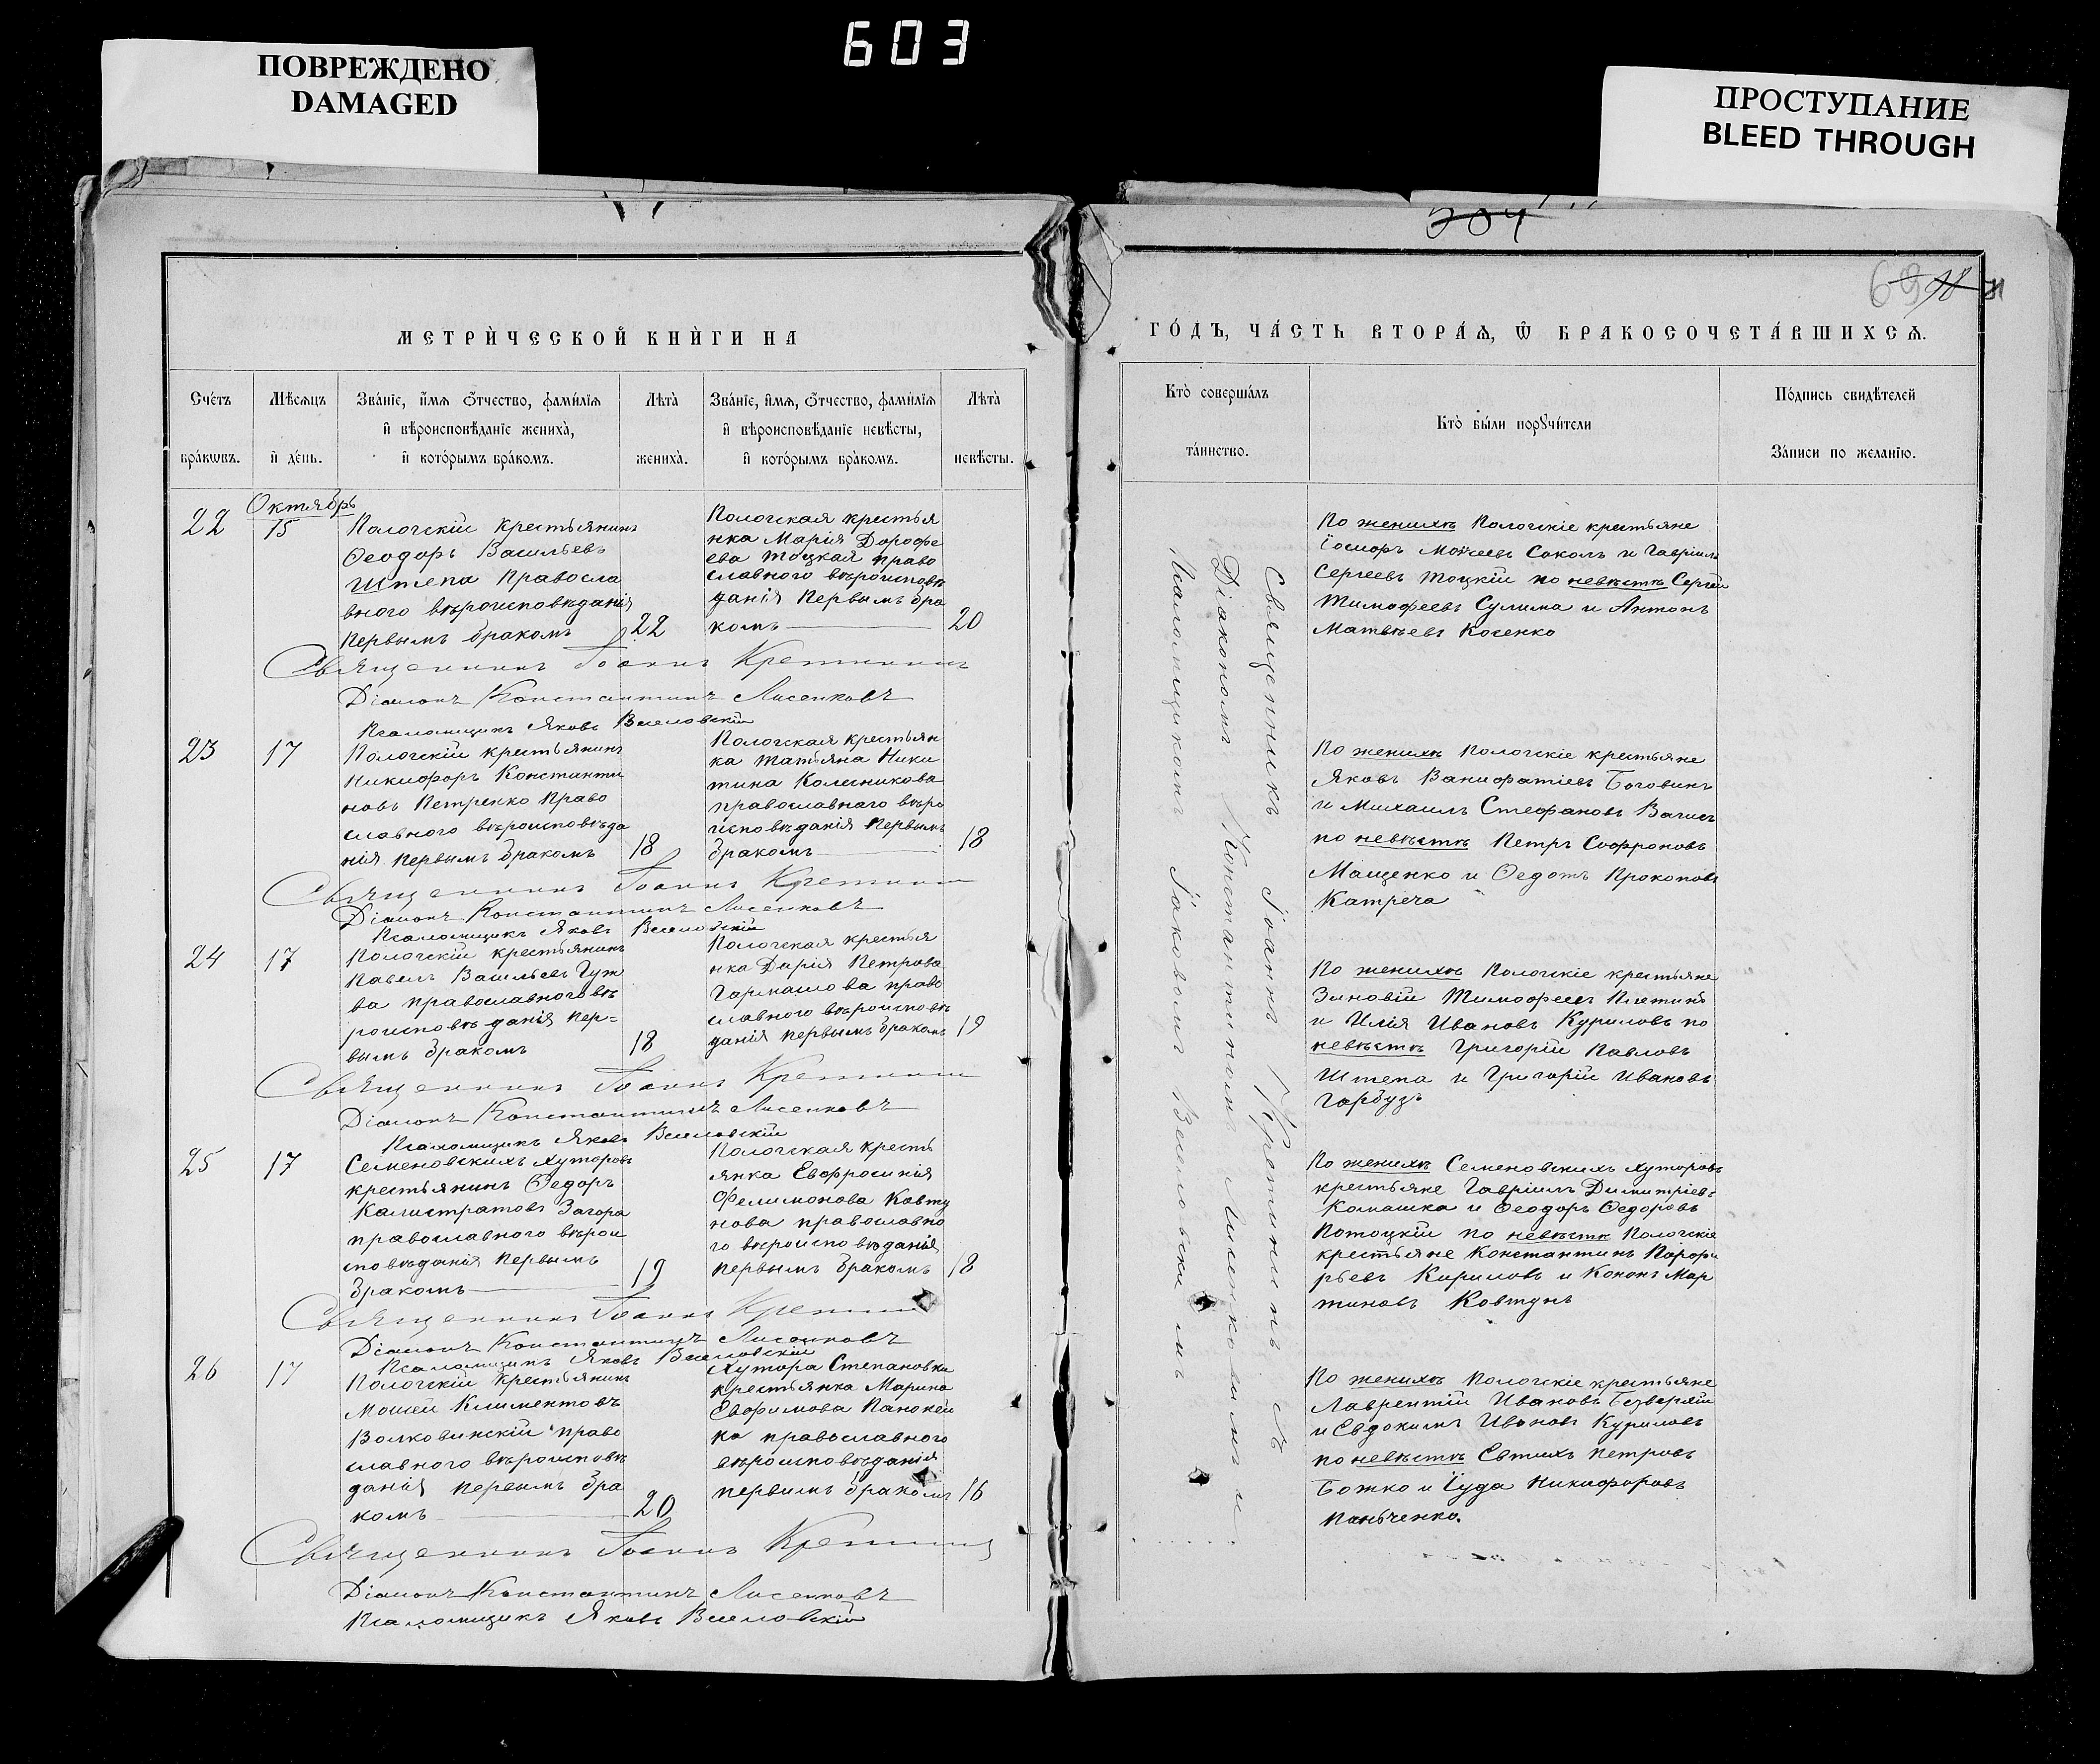 603
ПОВРЕЖДЕНО
DAMAGED
ПРОСТУПАНИЕ
BLEED THROUGH
МЕТРИ́ЧЕСКОЙ КНИ́ГИ НА
Сче́тъ бра́кѡвъ.
Мѣ́сѧцъ и҆ де́нь.
Зва́нїе, и҆́мѧ ѻ҆́тчество, фами́лїѧ
и҆ вѣроисповѣ́данїе жениха̀,
и҆ кото́рымъ бра́комъ.
Лѣта̀ жениха̀.
Зва́нїе, и҆́мѧ, ѻ҆́тчество, фами́лїѧ
и҆ вѣроисповѣ́данїе невѣ́сты,
и҆ кото́рымъ бра́комъ.
Лѣта̀ невѣ́сты.
22
Октябрь
15
Пологскій крестьянинъ
Ѳеодоръ Васильевъ
Штепа Правосла
вного вѣроисповѣданія
первымъ бракомъ
22
Пологская крестья
нка Марія Дорофе
ева Тоцкая право
славного вѣроисповѣ
данія Первымъ бра
комъ
20
Священникъ Іоаннъ Кретининъ
Діаконъ Константинъ Лисенковъ
Псаломщикъ Яковъ Веселовскій
23
17
Пологскій крестьянинъ
Никифоръ Константи
новъ Петренко Право
славного вѣроисповѣда
нія первымъ бракомъ
18
Пологская крестьян
ка Татьяна Ники
тина Колесникова
православнаго вѣро
исповѣданія Первымъ
бракомъ
18
Священникъ Іоаннъ Кретининъ
Діаконъ Константинъ Лисенковъ
Псаломщикъ Яковъ Веселовскій
24
17
Пологскій крестьянинъ
Павелъ Васильевъ Гуж
ва православного вѣ
роисповѣданія пер=
вымъ бракомъ
18
Пологская крестья
нка Дарія Петрова
Гармашова право
славного вѣроисповѣ
данія первымъ бракомъ
19
Священникъ Іоаннъ Кретининъ
Діаконъ Константинъ Лисенковъ
Псаломщикъ Яковъ Веселовскій
25
17
Семеновскихъ хуторовъ
крестьянинъ Ѳедоръ
Калистратовъ Загора
православного вѣрои
сповѣданія Первымъ
бракомъ
19
Пологская кресть
янка Евфросинія
Филимонова Ковту
нова православно
го вѣроисповѣданія
первымъ бракомъ
18
Священникъ Іоаннъ Кретининъ
Діаконъ Константинъ Лисенковъ
Псаломщикъ Яковъ Веселовскій
26
17
Пологскій крестьянинъ
Мойсей Климентовъ
Волковинскій право
славного вѣроисповѣ
данія первымъ бра
комъ
20
Хутора Степановки
крестьянка Марина
Евфимова
ко православного
вѣроисповѣданія
первымъ бракомъ
16
Священникъ Іоаннъ Кретининъ
Діаконъ Константинъ Лисенковъ
Псаломщикъ Яковъ Веселовскій
304
69 98
ГО́ДЪ, ЧА́СТЬ ВТОРА́Ѧ, Ѡ҆ БРАКОСОЧЕТА́ВШИХСѦ.
Кто̀ соверша́лъ та́инство.
Кто̀ бы́ли порꙋчи́тели
По́дпись свидѣ́телей
За́писи по жела́нїю.
Священникъ Іоаннъ Кретининъ съ
Діакономъ Константиномъ Лисенковымъ и
Псаломщикомъ Іаковомъ Веселовскимъ
По женихѣ Пологскіе крестьяне
Іосифъ Мойсеевъ Соколъ и Гавріилъ
Сергеевъ Тоцкій по невѣстѣ Сергій
Тимофеевъ Сулима и Антонъ
Матвѣевъ Косенко
По женихѣ Пологскіе крестьяне
Яковъ Ванифатіевъ Боговинъ
и Михаилъ Стефановъ
по невѣстѣ Петръ Софроновъ
Мащенко и Ѳедотъ Прокоповъ
Катреча
По женихѣ Пологскіе крестьяне
Зиновій Тимофеевъ
и Илія Ивановъ Куриловъ по
невѣстѣ Григорій Павловъ
Штепа и Григорій Ивановъ
Гарбузъ
По женихѣ Семеновскихъ хуторовъ
крестьяне Гавріилъ Димитріевъ
Комашка и Ѳеодоръ Ѳедоровъ
Потоцкій по невѣстѣ Пологскіе
крестьяне Константинъ Порфи
рьевъ Кириловъ и Кононъ Мар
тиновъ Ковтунъ
По женихѣ Пологскіе крестьяне
Лаврентій Ивановъ Безверхій
и Евдокимъ Ивановъ Куриловъ
по невѣстѣ Евтихъ Петровъ
Божко и Іуда Никифоровъ
Паньченко.